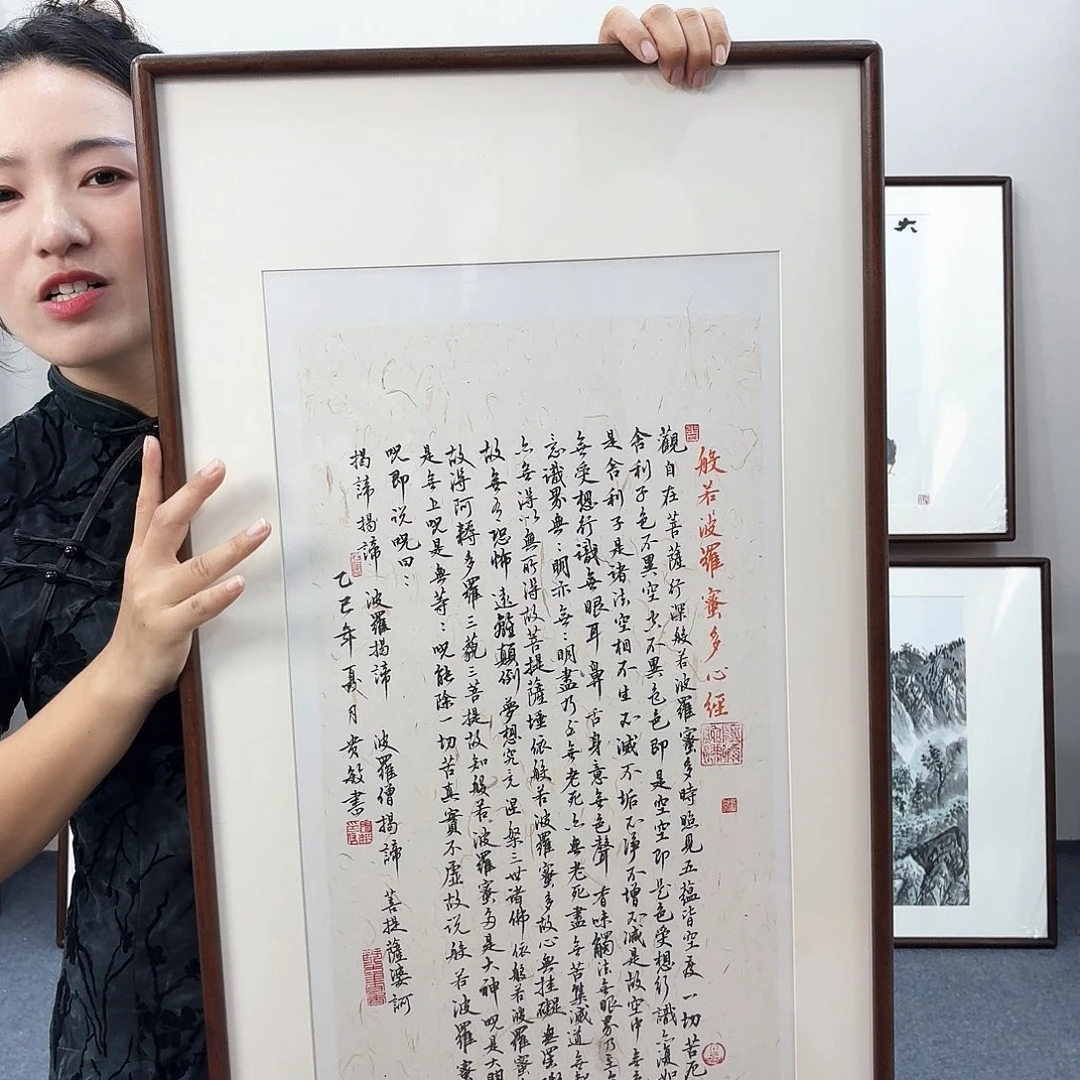 般若波羅蜜多心經
觀自在菩薩行深般若波羅蜜多時照見五蘊皆空度一切苦厄
舍利子色不異空空不異色色即是空空即是色受想行識亦復如
是舍利子是諸法空相不生不滅不垢不淨不增不減是故空中無
無受想行識無眼耳鼻舌身意無色聲香味觸法無眼界乃至
意識界無：明亦無：明盡乃至無老死亦無老死盡無苦集滅道無智
亦無得以無所得故菩提薩埵依般若波羅蜜多故心無挂礙無罣
故無有恐怖遠離顛倒夢想究竟涅槃三世諸佛依般若波羅蜜
故得阿耨多羅三藐三菩提故知般若波羅蜜多是大神咒是大明
是無上咒是無等：咒能除一切苦真實不虛故說般若波羅蜜
呪即說呪曰：
揭諦揭諦 波羅揭諦 波羅僧揭諦 菩提薩婆訶
乙巳年夏月貴敏書
大